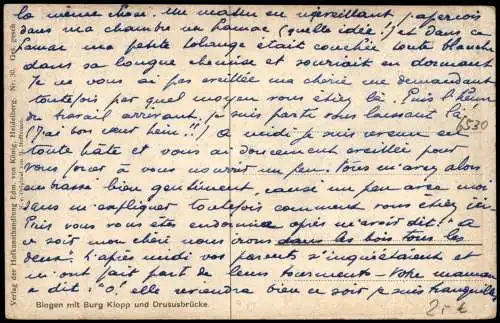 la même chose. Un matin en m'éveillant j'aperçois
dans ma chambre un hamac (quelle idée!) et dans ce
hamac ma petite Solange était couchée toute blanche
dans sa longue chemise et souriait en dormant
Je ne vous ai pas éveillée ma chérie me demandant
toutefois par quel moyen vous étiez là. Puis l'heure
de travail arrivant, je suis parti vous laissant là
(J'ai bon cœur hein!!) A midi je suis revenu en
toute hâte et vous ai doucement éveillée pour
vous forcer à vous nourrir un peu. Vous m'avez alors
embrassé bien gentiment, causé un peu avec moi
sans m'expliquer toutefois comment vous étiez ici
Puis vous vous êtes endormie après m'avoir dit: "A
ce soir mon chéri nous irons dans les bois tous les
deux." L'après midi vos parents s'inquiétaient et
m'ont fait part de leurs tourments - Votre maman
a dit: "O! elle reviendra bien ce soir je suis tranquille
Bingen mit Burg Klopp und Drususbrücke.
Verlag der Hofkunsthandlung Edm. von König, Heidelberg. Nr. 30. Ges. gesch.
6530